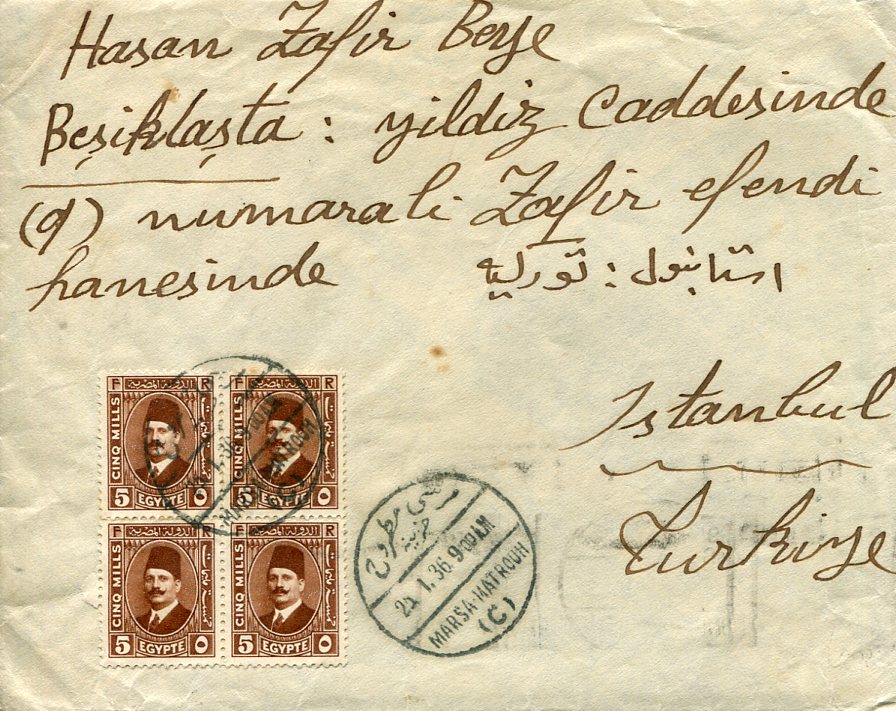 Hasan Zafir Beye
Beşiklaşta : yildiz Caddesinde
(9) numarali Zafir efendi
hanesinde
استانبول : توركيه
Istanbul
Turkiye
F الدولة المصرية R
CINQ MILLS
5 EGYPTE ٥
F الدولة المصرية R
CINQ MILLS
5 EGYPTE ٥
F الدولة المصرية R
CINQ MILLS
5 EGYPTE ٥
F الدولة المصرية R
CINQ MILLS
5 EGYPTE ٥
1.36 9 00 AM
MARSA-MATROUH
(C)
مرسى مطروح
1.36 9 00 AM
MARSA-MATROUH
(C)